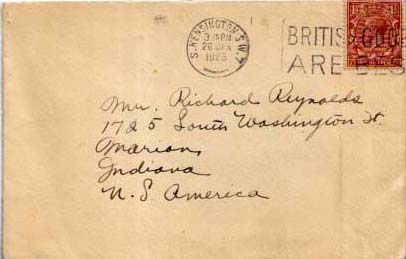 S. KENSINGTON. S.W.7
3 15 PM
26 JAN
1926
BRITISH GOO
ARE BES
Mr. Richard Reynolds
1725 South Washington St.
Marion,
Indiana
U. S. America